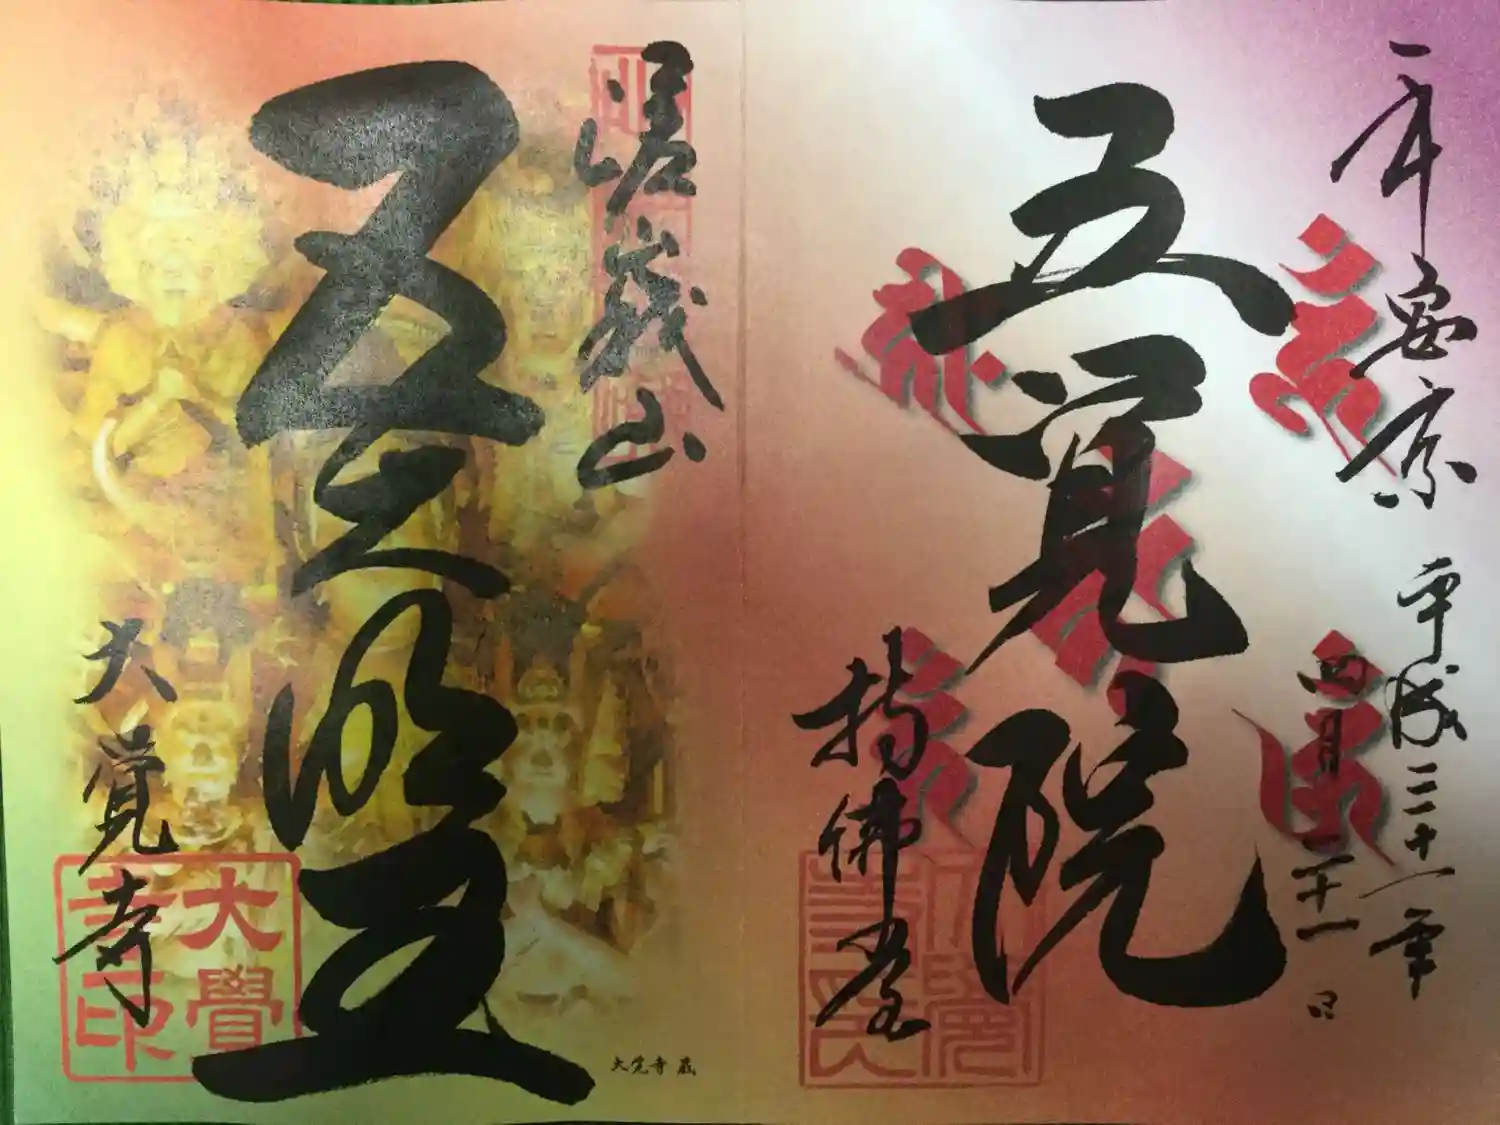 平安京
平成三十一年
四月二十一日
五覚院
持佛堂
嵯峨山
五大明王
大覚寺
大覺寺印
大覚寺 蔵